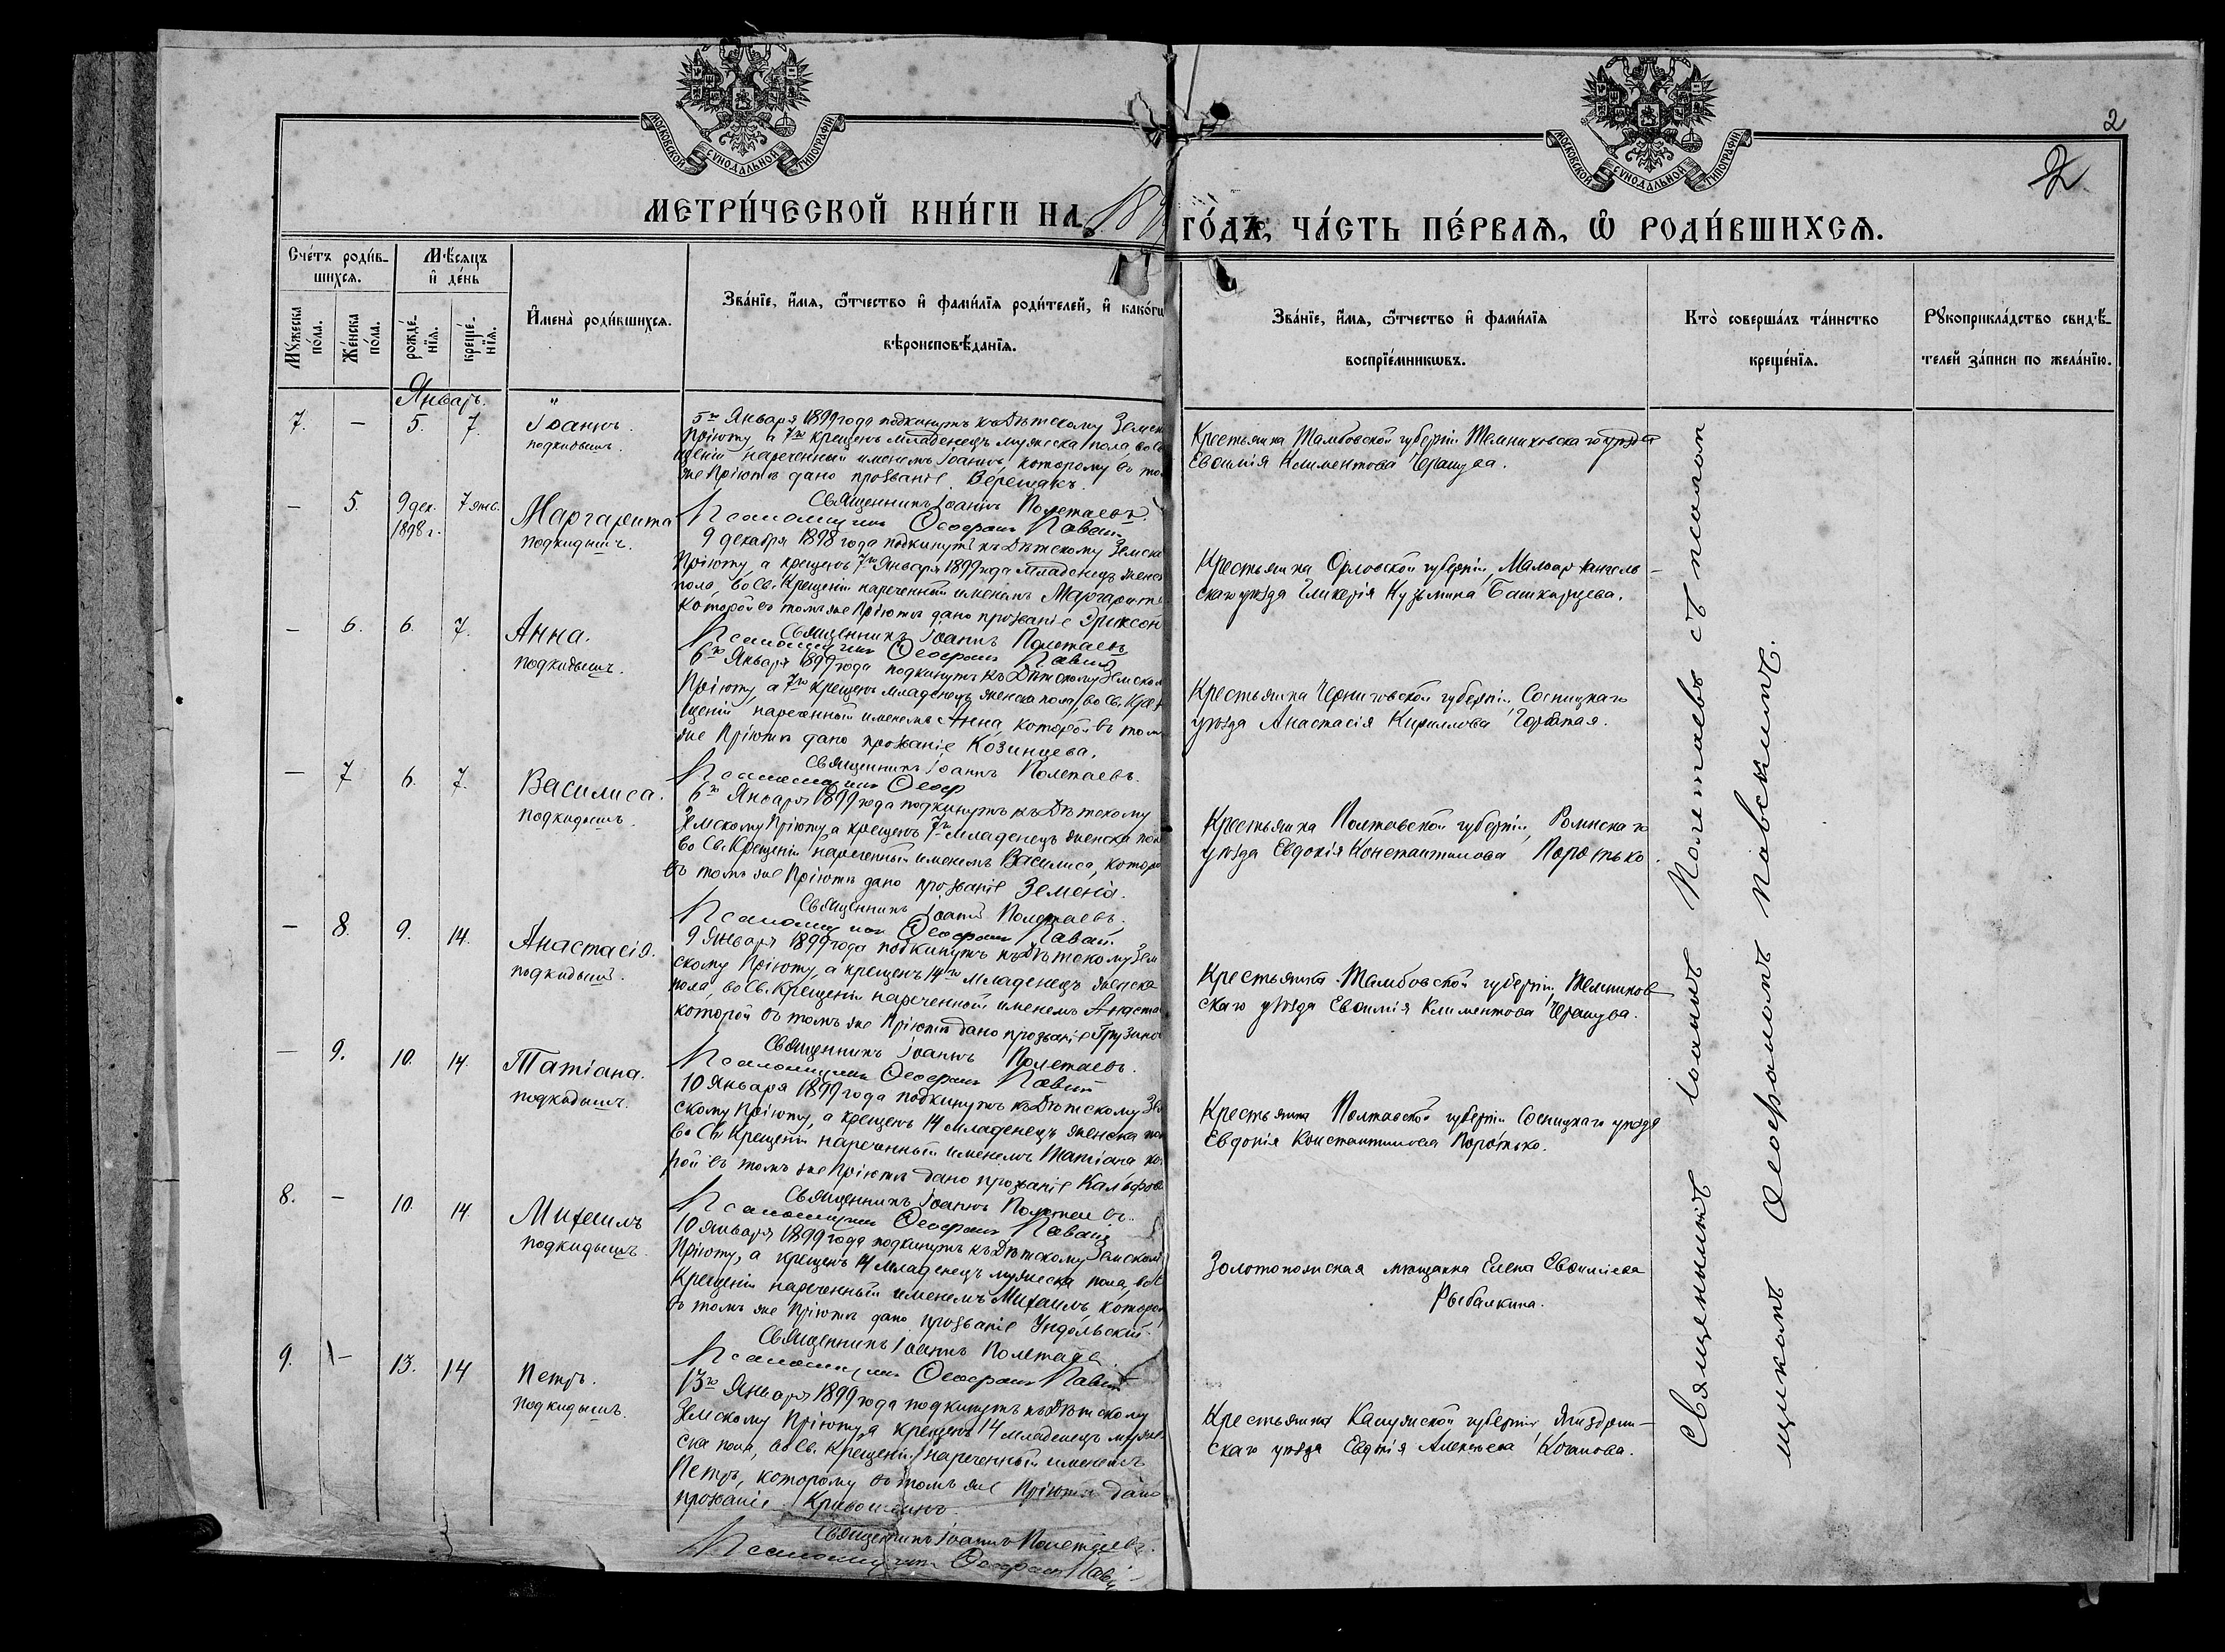 МОСКОВСКОЙ СУНОДАЛЬНОЙ ТИПОГРАФІИ
МОСКОВСКОЙ СУНОДАЛЬНОЙ ТИПОГРАФІИ
2
2
МЕТРИ́ЧЕСКОЙ КНИ́ГИ НА 18
ГО́ДЪ, ЧА́СТЬ ПЕ́РВАѦ, Ѽ РОДИ́ВШИХСѦ.
Сче́тъ роди́в-
шихсѧ.
Мѣ́сѧцъ
и҆ де́нь
Мꙋ́жеска
по́ла.
Же́нска
по́ла.
рожде́-
нїѧ.
креще́-
нїѧ.
И҆мена̀ роди́вшихсѧ.
Зва́нїе, и҆́мѧ, ѻ҆́тчество и҆ фами́лїѧ роди́телей, и҆ како́гѡ
вѣроисповѣ́данїѧ.
Зва́нїе, и҆́мѧ, ѻ҆́тчество и҆ фами́лїѧ
воспрїе́мникѡвъ.
Кто̀ соверша́лъ та́инство
креще́нїѧ.
Рꙋкоприкла́дство свидѣ́-
телей за́писи по жела́нїю.
Январь.
7. — 5. 7.
Іоаннъ.
подкидышъ.
5го Января 1899 года подкинутъ къ Дѣтскому Земск
Пріюту, а 7го крещенъ младенецъ мужеска пола, во Св
щеніи нареченный именемъ Іоаннъ, которому въ том
же Пріютѣ дано прозваніе Верещакъ.
Священникъ Іоаннъ Полетаевъ.
Псаломщикъ Ѳеофанъ
Крестьянка Тамбовской губерніи Темниковскаго уѣзда
Евѳимія Климентова
— 5. 9 дек. 1898 г. 7 янв.
Маргарита
подкидышъ.
9 декабря 1898 года подкинутъ къ Дѣтскому Земск
Пріюту, а крещенъ 7го Января 1899 года младенецъ женск
пола, во Св. Крещеніи нареченный именемъ Маргарита
которой въ томъ же Пріютѣ дано прозваніе Эриксон
Священникъ Іоаннъ Полетаевъ
Псаломщикъ Ѳеофанъ
Крестьянка Орловской губерніи, Малоархангель-
скаго уѣзда Гликерія Кузьмина Башкирцева.
— 6. 6. 7.
Анна.
подкидышъ.
6го Января 1899 года подкинутъ къ Дѣтскому Земском
Пріюту, а 7го крещенъ младенецъ женска пола, во Св. Кре
щеніи нареченный именемъ Анна, которой въ том
же Пріютѣ дано прозваніе Козинцева.
Священникъ Іоаннъ Полетаевъ.
Псаломщикъ Ѳеоф
Крестьянка Черниговской губерніи, Сосницкаго
уѣзда Анастасія Кириллова Горбатая.
— 7 6. 7.
Василиса.
подкидышъ.
6го Января 1899 года подкинутъ къ Дѣтскому
Земскому Пріюту, а крещенъ 7го младенецъ женска пол
во Св. Крещеніи нареченный именемъ Василиса, которо
въ томъ же Пріютѣ дано прозваніе Земена.
Священникъ Іоаннъ Полетаевъ.
Псаломщикъ Ѳеофанъ
Крестьянка Полтавской губерніи, Роменскаго
уѣзда Евдокія Константинова Поротько.
— 8. 9. 14.
Анастасія.
подкидышъ.
9 Января 1899 года подкинутъ къ Дѣтскому Зем
скому Пріюту, а крещенъ 14го младенецъ женска
пола, во Св. Крещеніи нареченный именемъ Анаста
которой въ томъ же Пріютѣ дано прозваніе Грузино
Священникъ Іоаннъ Полетаевъ.
Псаломщикъ Ѳеофанъ
Крестьянка Тамбовской губерніи, Темников
скаго уѣзда Евѳимія Климентова
— 9. 10. 14.
Татіана.
подкидышъ.
10 Января 1899 года подкинутъ къ Дѣтскому Зем
скому Пріюту, а крещенъ 14 младенецъ женска пол
во Св. Крещеніи нареченный именемъ Татіана ко
рой въ томъ же Пріютѣ дано прозваніе Кальфов
Священникъ Іоаннъ Полетаевъ.
Псаломщикъ Ѳеофанъ
Крестьянка Полтавской губерніи Сосницкаго уѣзда
Евдокія Константинова Поротько.
8. — 10. 14.
Михаилъ
подкидышъ.
10 Января 1899 года подкинутъ къ Дѣтскому Земском
Пріюту, а крещенъ 14 младенецъ мужеска пола, во С
Крещеніи нареченный именемъ Михаилъ, котором
въ томъ же Пріютѣ дано прозваніе Ундольскій.
Священникъ Іоаннъ Полетаевъ.
Псаломщикъ Ѳеофанъ
Золотоношская мѣщанка Елена Евѳиміева
Рыбалкина.
9. — 13. 14
Петръ.
подкидышъ.
13го Января 1899 года подкинутъ къ Дѣтскому
Земскому Пріюту, а крещенъ 14 младенецъ муже
ска пола, во Св. Крещеніи нареченный именемъ
Петръ, которому въ томъ же Пріютѣ дано
прозваніе Кривошеинъ.
Священникъ Іоаннъ Полетаевъ.
Псаломщикъ Ѳеофанъ
Крестьянка Калужской губерніи Жиздрин-
скаго уѣзда Евдокія Алексѣева
Священникъ Іоаннъ Полетаевъ съ псалом
щикомъ Ѳеофаномъ Павскимъ.